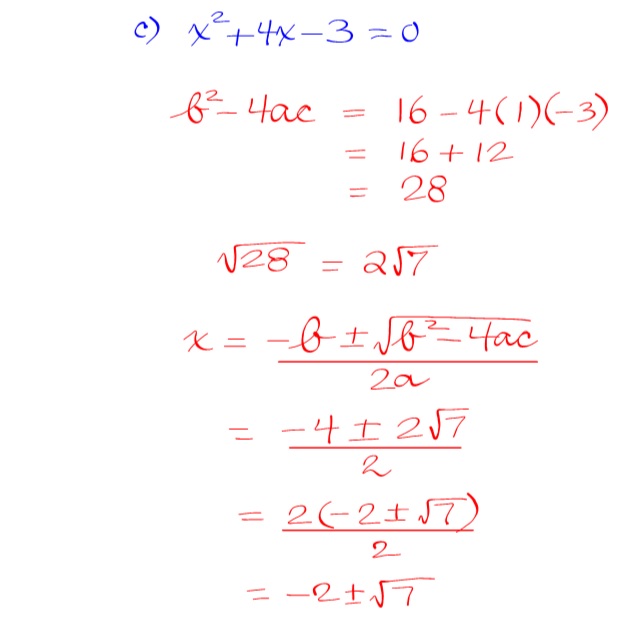 c) x²+4x-3=0
b²-4ac = 16-4(1)(-3)
= 16+12
= 28
√28 = 2√7
x = (-b±√(b²-4ac))/(2a)
= (-4±2√7)/2
= 2(-2±√7)/2
= -2±√7